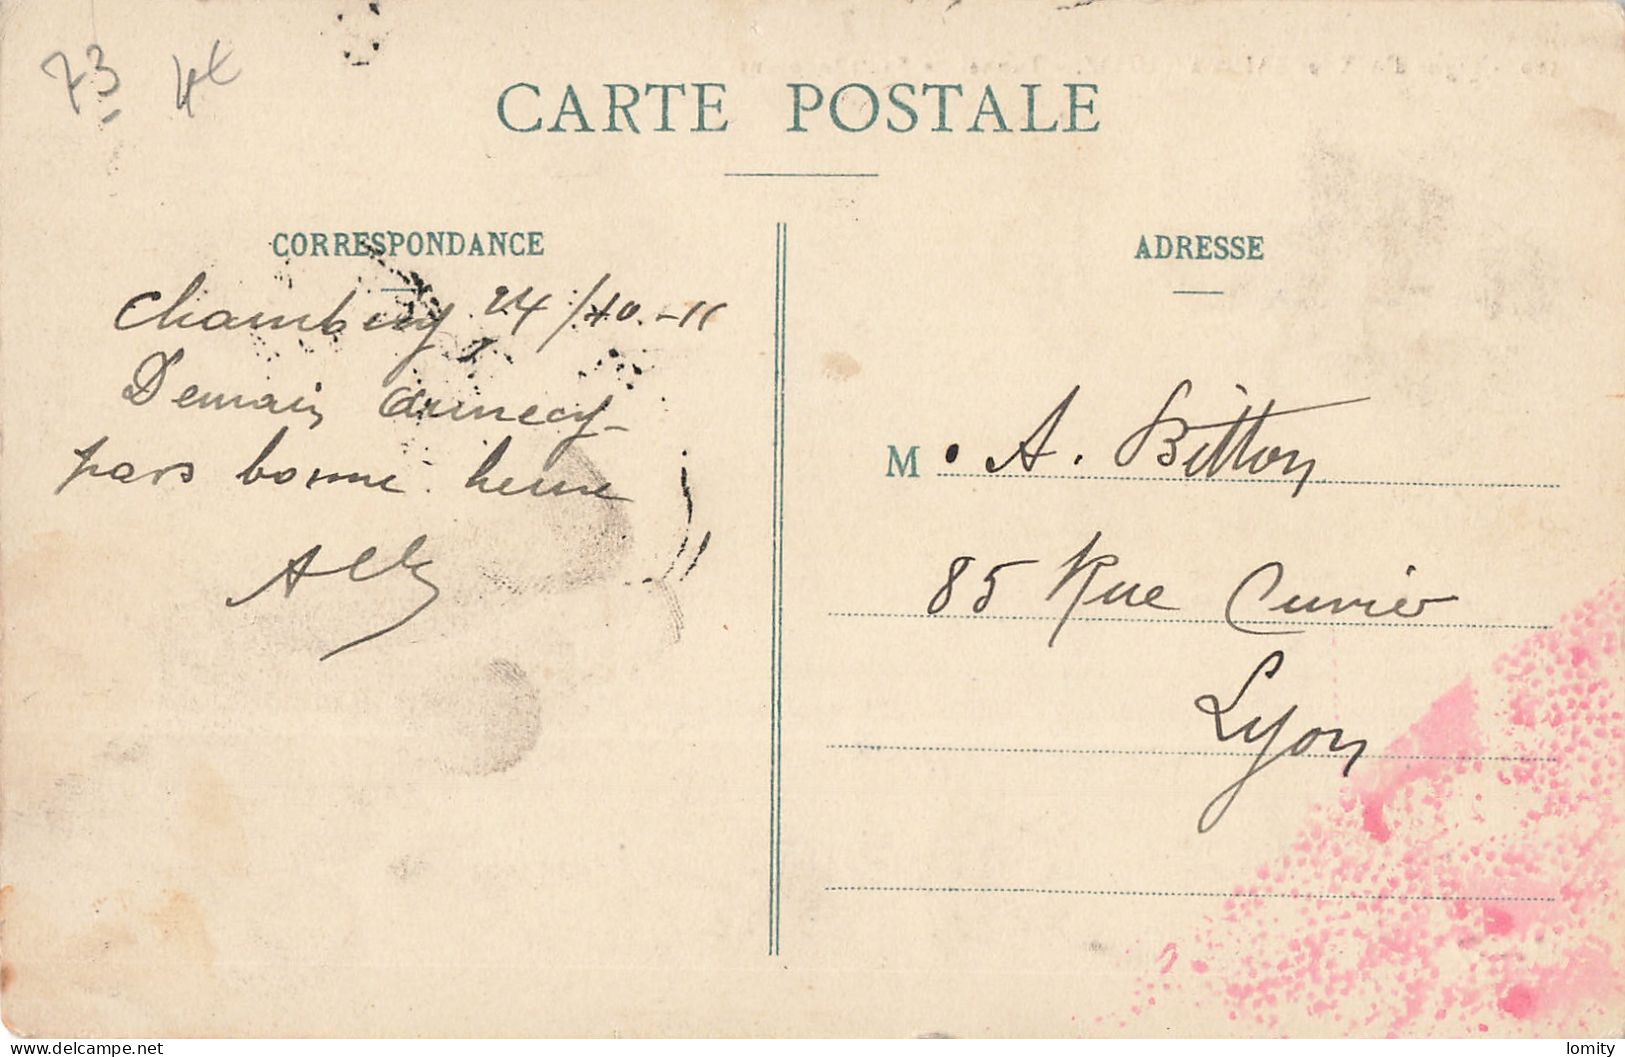 73 4€
CARTE POSTALE
CORRESPONDANCE
Chambery 24/10-11
Demain Annecy-
pars bonne heure
ADRESSE
M. A. Bitton
85 Rue Cuvier
Lyon
delcampe.net
lomity